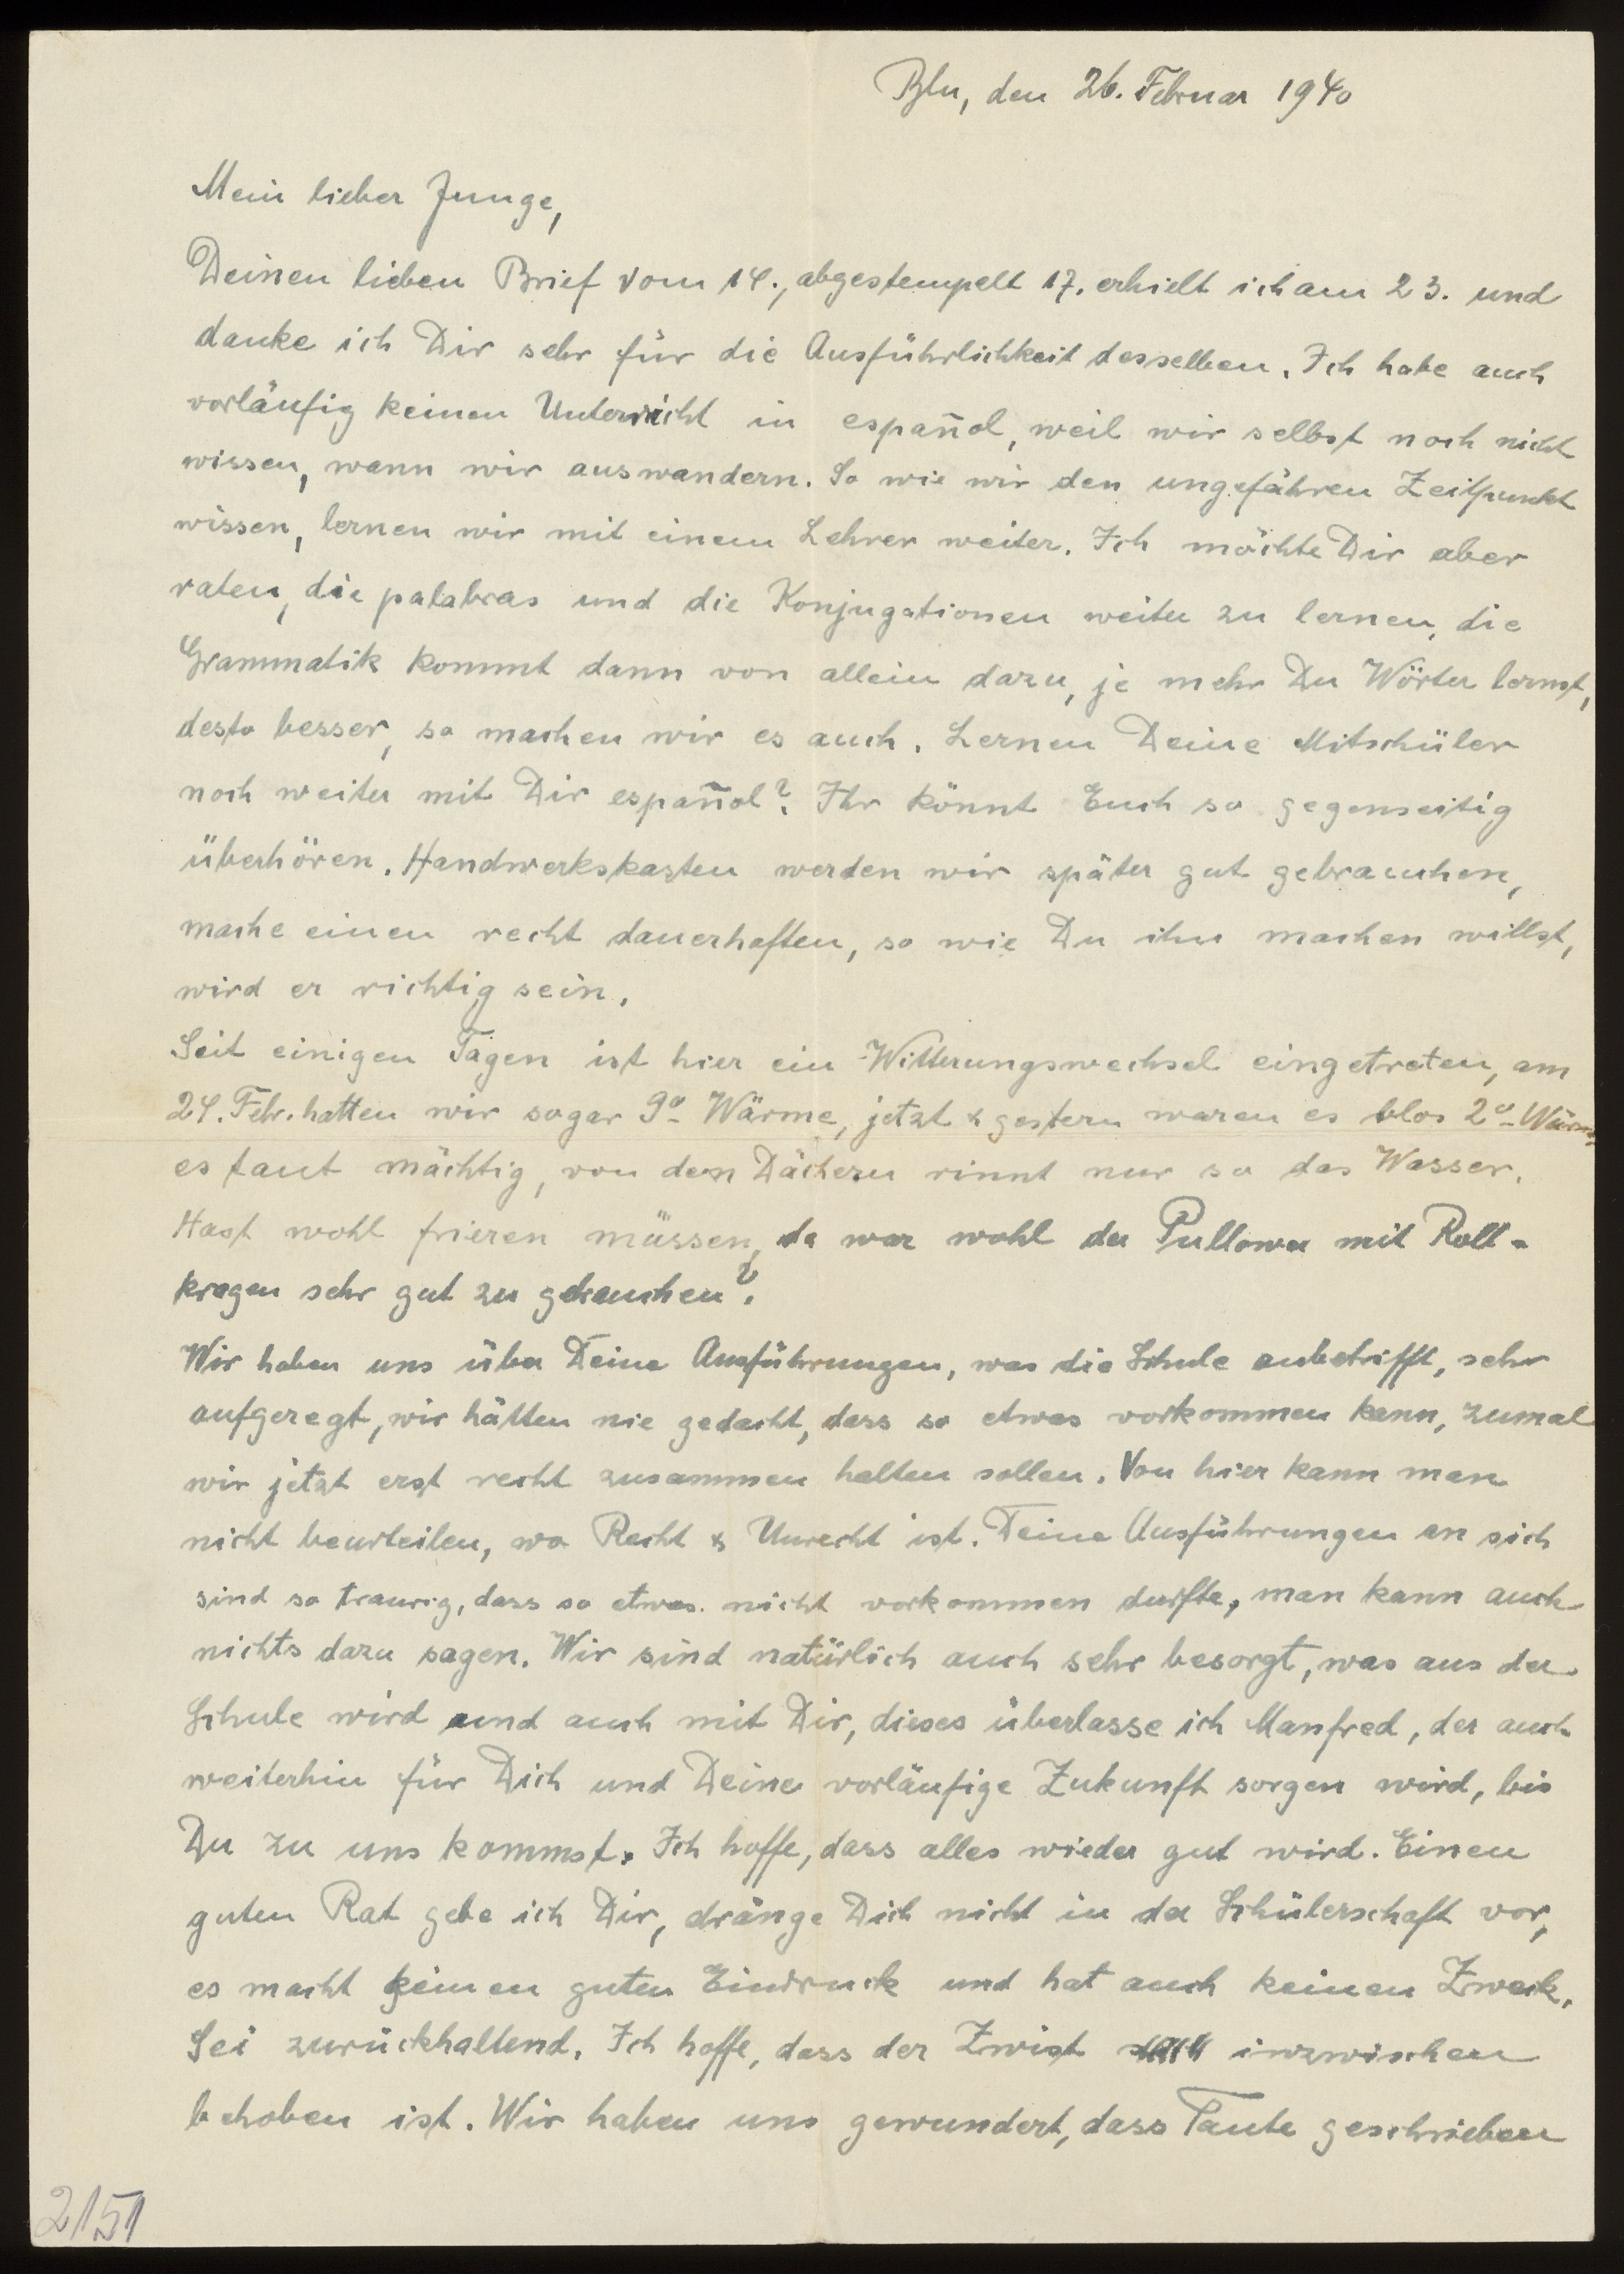 Bln, den 26. Februar 1940
Mein lieber Junge,
Deinen lieben Brief vom 14., abgestempelt 17. erhielt ich am 23. und
danke ich Dir sehr für die Ausführlichkeit desselben. Ich habe auch
vorläufig keinen Unterricht in español, weil wir selbst noch nicht
wissen, wann wir auswandern. So wie wir den ungefähren Zeitpunkt
wissen, lernen wir mit einem Lehrer weiter. Ich möchte Dir aber
raten, die palabras und die Konjugationen weiter zu lernen, die
Grammatik kommt dann von allein dazu, je mehr Du Wörter lernst,
desto besser, so machen wir es auch. Lernen Deine Mitschüler
noch weiter mit Dir español? Ihr könnt Euch so gegenseitig
überhören. Handwerkskasten werden wir später gut gebrauchen,
mache einen recht dauerhaften, so wie Du ihn machen willst,
wird er richtig sein.
Seit einigen Tagen ist hier ein Witterungswechsel eingetreten, am
24. Febr. hatten wir sogar 9° Wärme, jetzt & gestern waren es blos 2° Wärme,
es taut mächtig, von den Dächern rinnt nur so das Wasser.
Hast wohl frieren müssen, da war wohl der Pullower mit Roll-
kragen sehr gut zu gebrauchen?
Wir haben uns über Deine Ausführungen, was die Schule anbetrifft, sehr
aufgeregt, wir hätten nie gedacht, dass so etwas vorkommen kann, zumal
wir jetzt erst recht zusammen halten sollen. Von hier kann man
nicht beurteilen, wo Recht & Unrecht ist. Deine Ausführungen an sich
sind so traurig, dass so etwas nicht vorkommen durfte, man kann auch
nichts dazu sagen. Wir sind natürlich auch sehr besorgt, was aus der
Schule wird und auch mit Dir, dieses überlasse ich Manfred, der auch
weiterhin für Dich und Deine vorläufige Zukunft sorgen wird, bis
Du zu uns kommst. Ich hoffe, dass alles wieder gut wird. Einen
guten Rat gebe ich Dir, dränge Dich nicht in der Schülerschaft vor,
es macht keinen guten Eindruck und hat auch keinen Zweck.
Sei zurückhaltend. Ich hoffe, dass der Zwist inzwischen
behoben ist. Wir haben uns gewundert, dass Tante geschrieben
2151